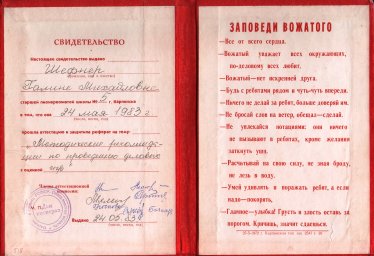 СВИДЕТЕЛЬСТВО
Настоящее свидетельство выдано
Шефнер
Галине Михайловне
старшей пионервожатой школы № 5 г. Карпинска
в том, что она 24 мая 1983 г.
прошла аттестацию и защитила реферат на тему:
„Методические рекоменда-
ции по проведению деловой
игр"
с оценкой
Члены аттестационной
Выдано 24.05.83 г.
ЗАПОВЕДИ ВОЖАТОГО
—Все от всего сердца.
—Вожатый уважает всех окружающих,
по-деловому всех любит.
—Вожатый—нет искренней друга.
—Будь с ребятами рядом и чуть-чуть впереди.
—Ничего не делай за ребят, больше доверяй им.
—Не бросай слов на ветер, обещал—сделай.
—Не увлекайся нотациями: они ничего
не вызывают в ребятах, кроме желания
заткнуть уши.
—Расчитывай на свою силу, не зная броду,
не лезь в воду.
—Умей удивлять и поражать ребят, а если
надо—покорять,
—Главное—улыбка! Грусть и злость оставь за
порогом. Кричишь, значит сдаешься.